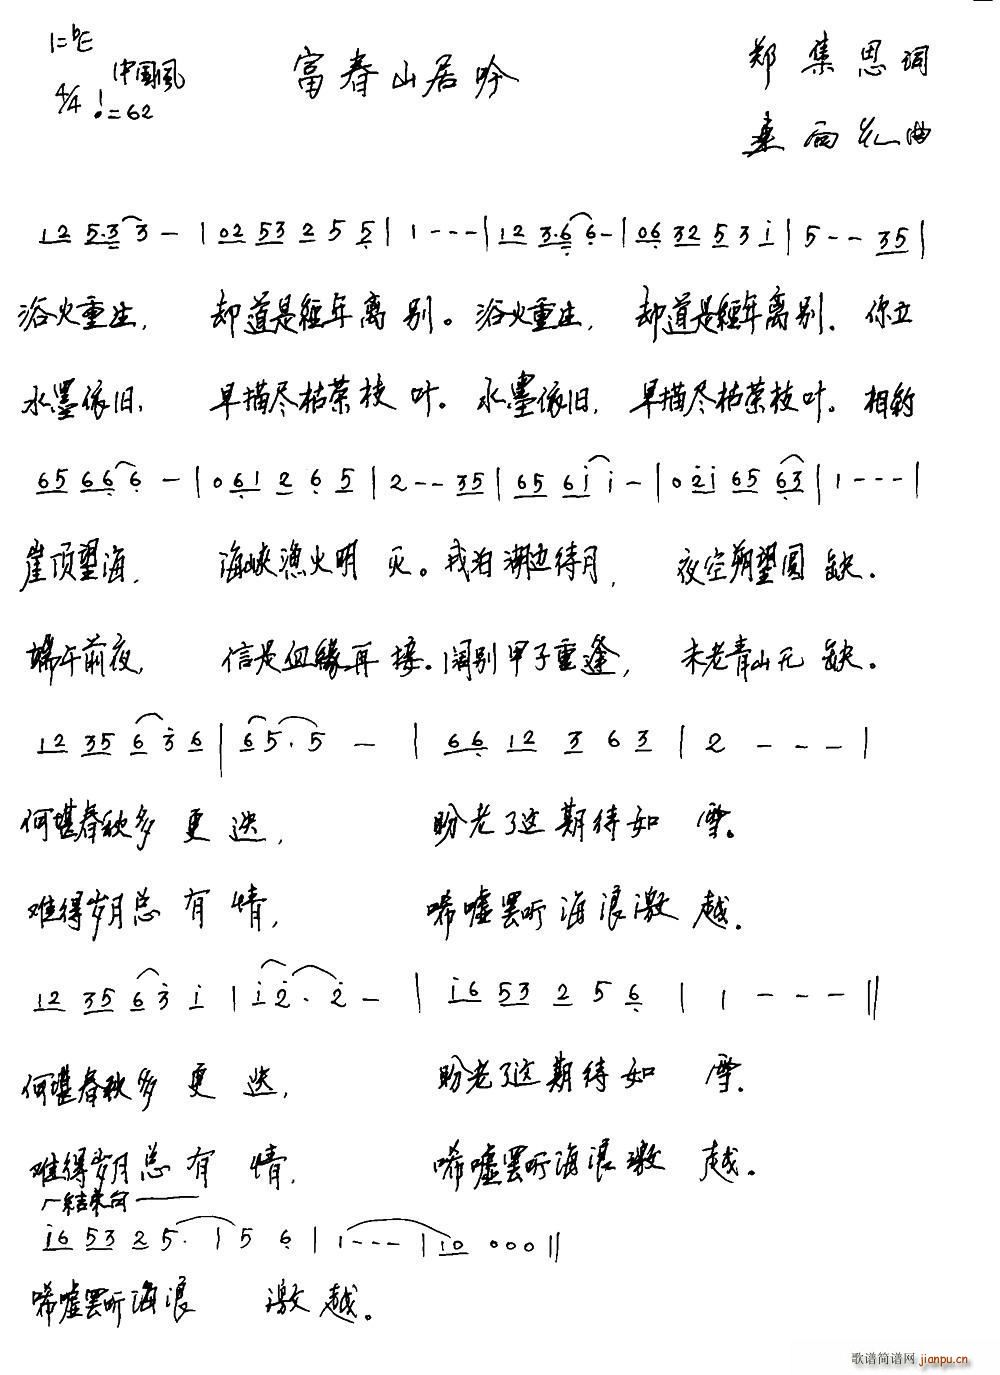 1=bE
中国风
4/4 ♩=62
富春山居吟
郑集恩词
桑雨花曲
12 5·3 3 - | 02 53 2 5 5 | 1 - - - | 12 3·6 6 - | 06 32 5 3 i | 5 - - 35 |
浴火重生, 却道是經年离别。浴火重生, 却道是經年离别. 你立
水墨依旧, 早描尽枯荣枝叶。水墨依旧, 早描尽枯荣枝叶。相約
65 66 6 - | 0 61 2 6 5 | 2 - - 35 | 65 6i i - | 0 2i 65 63 | 1 - - - |
崖顶望海, 海峡漁火明灭。我泊湖边待月, 夜空朔望圆缺.
端午前夜, 信是血緣再接. 阔别甲子重逢, 未老青山无缺。
12 35 6 3 6 | 6 5 · 5 - | 66 12 3 6 3 | 2 - - - |
何堪春秋多更迭, 盼老了这期待如雪.
难得岁月总有情, 唏嘘罢听海浪激越.
12 35 6 3 i | i 2 · 2 - | i6 53 2 5 6 | 1 - - - ||
何堪春秋多更迭, 盼老了这期待如雪.
难得岁月总有情, 唏嘘罢听海浪激越.
结束句
i6 53 2 5· | 5 6 | 1 - - - | 10 000 ||
唏嘘罢听海浪激越。
歌谱简谱网 jianpu.cn